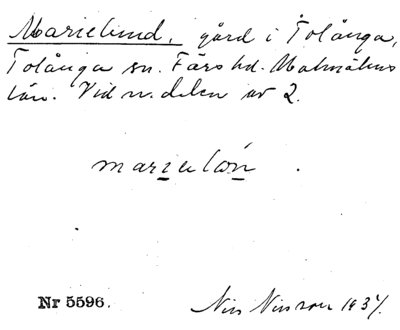 Marielund, gård i Tolånga,
Tolånga sn. Färs hd. Malmöhus
län. Vid n. delen av 2.
Nr 5596.
Nils Nilsson 1934.